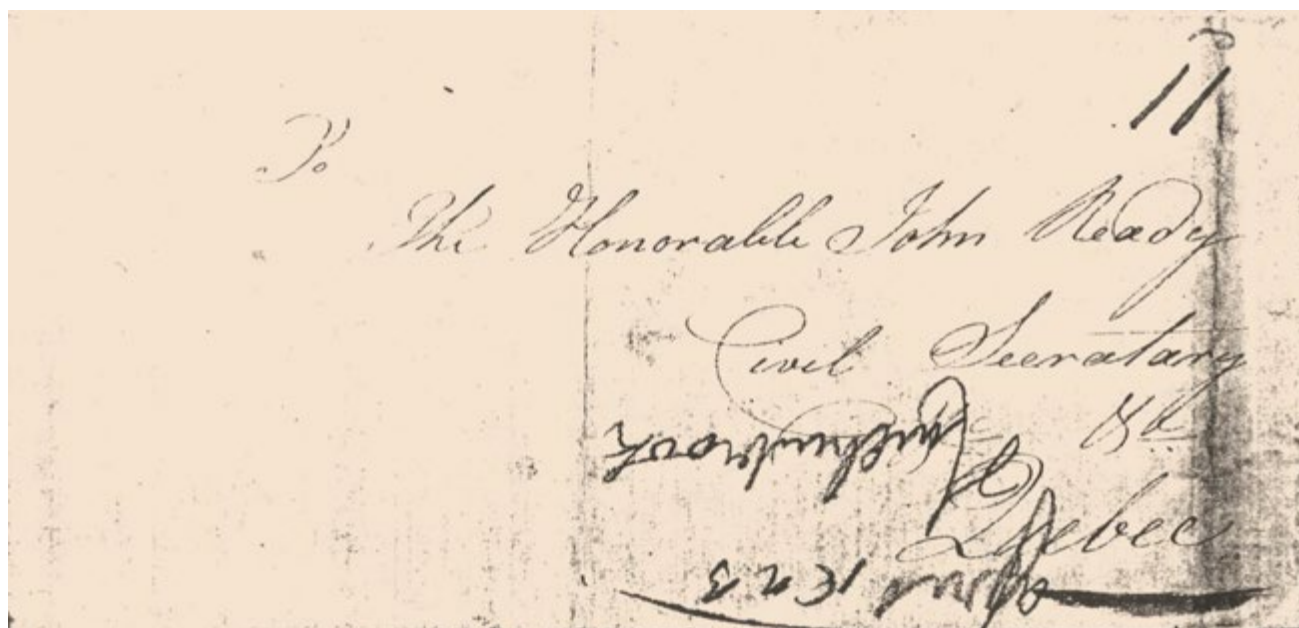 11
To
The Honorable John Ready
Civil Secratary
&c &c
Quebec